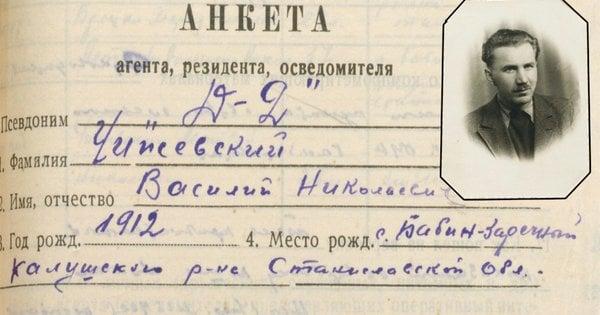 АНКЕТА
агента, резидента, осведомителя
Псевдоним „Д-2"
1. Фамилия Чижевский
2. Имя, отчество Василий Николаевич
3. Год рожд. 1912 4. Место рожд. с. Бабин-Заречный
Калушского р-на Станиславской обл.